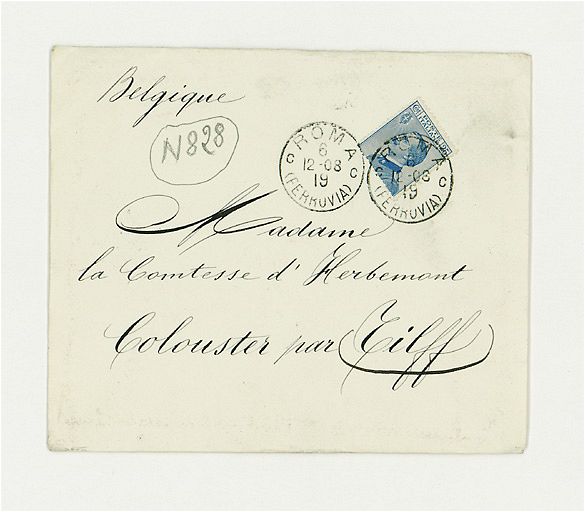 Belgique
N828
ROMA
6
12-08
19
C C
(FERROVIA)
ROMA
6
12-08
19
C C
(FERROVIA)
Madame
la Comtesse d'Herbemont
Colouster par Tilff